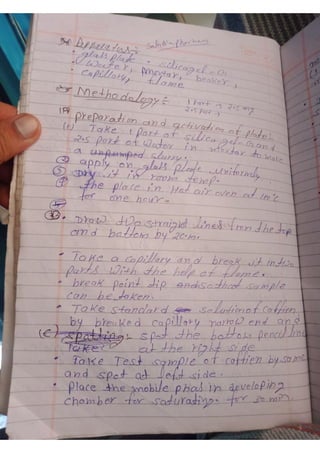 Apparatus:-
• glass plate • silica gel-G
• water, mortar, beaker,
capillary, flame
Methodology:-
preparation and activation of plate:-
Take 1 part of silica gel-G and
2.5 part of water in mortar to make
a slurry.
② apply on glass plate uniformly
③ Dry it in room temp.
④ the place in Hot air oven at
for one hour.
Draw two straight lines from the top
and bottom by 2cm.
• Take a capillary and break it in two
parts with the help of flame.
• break point tip end so that sample
can be taken.
• Take standard solution of caffien
by breaked capillary narrow end and
(c) spotting:- spot the bottom pencil line
at the right side
• Take Test sample of caffien by same
and spot at left side.
• place the mobile phas in developing
chamber for saturating. for 30 min